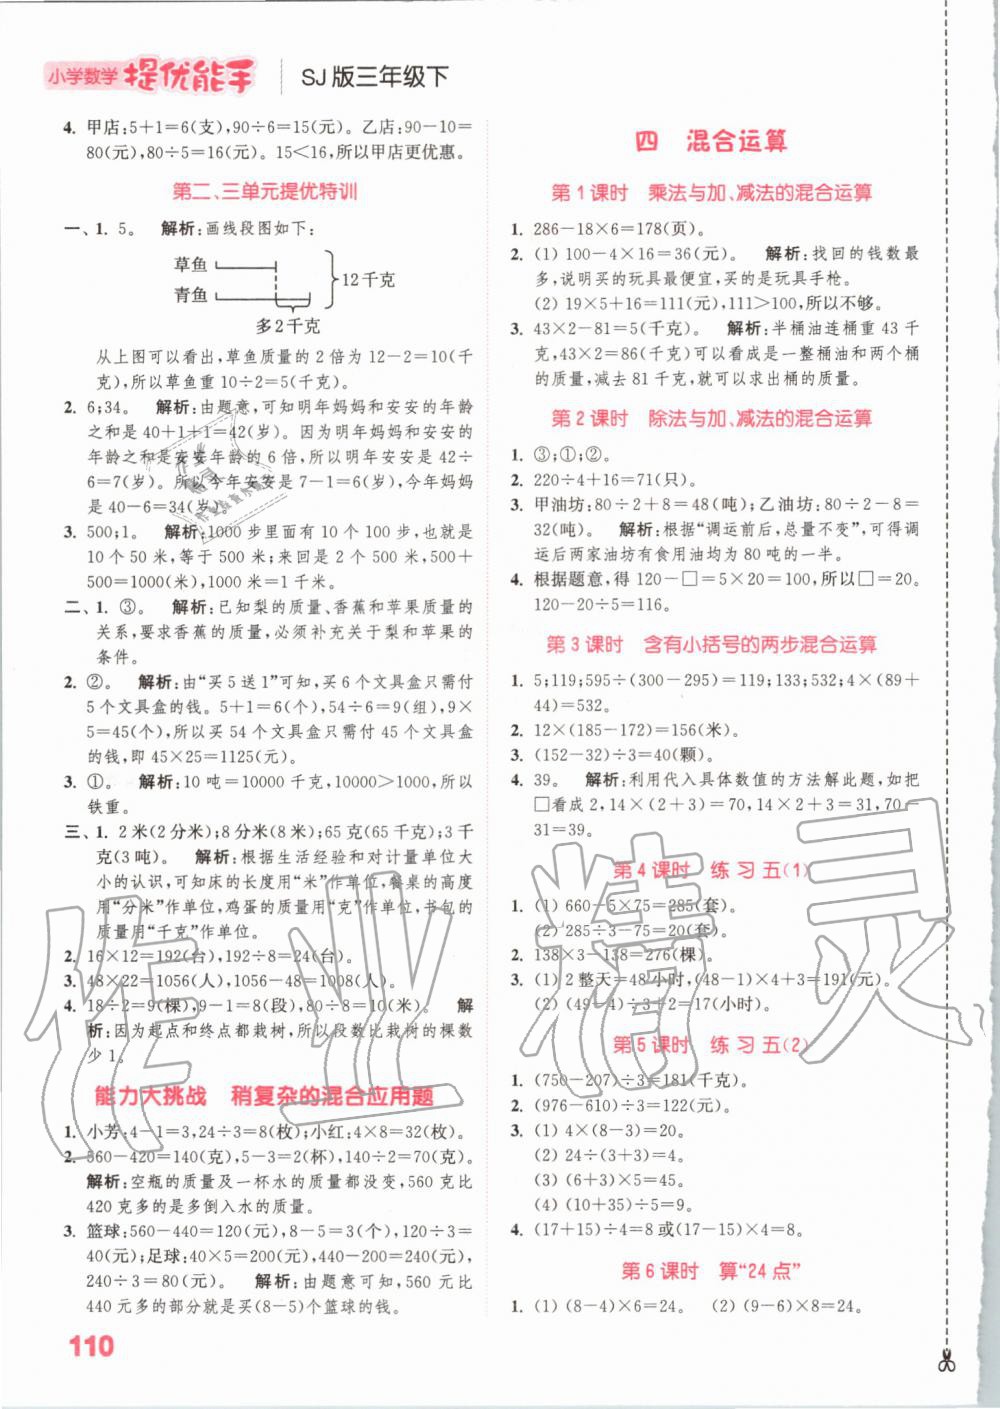 小学数学 提优能手 SJ版三年级下
4. 甲店:5+1=6(支),90÷6=15(元)。乙店:90-10=
80(元),80÷5=16(元)。15<16,所以甲店更优惠。
第二、三单元提优特训
一、1. 5。 解析:画线段图如下:
草鱼
青鱼
12千克
多2千克
从上图可以看出,草鱼质量的2倍为12-2=10(千
克),所以草鱼重10÷2=5(千克)。
2. 6;34。 解析:由题意,可知明年妈妈和安安的年龄
之和是40+1+1=42(岁)。因为明年妈妈和安安的
年龄之和是安安年龄的6倍,所以明年安安是42÷
6=7(岁)。所以今年安安是7-1=6(岁),今年妈妈
是40-6=34(岁)。
3. 500;1。 解析:1000步里面有10个100步,也就是
10个50米,等于500米;来回是2个500米,500+
500=1000(米),1000米=1千米。
二、1. ③。 解析:已知梨的质量、香蕉和苹果质量的
关系,要求香蕉的质量,必须补充关于梨和苹果的
条件。
2. ②。 解析:由“买5送1”可知,买6个文具盒只需付
5个文具盒的钱。5+1=6(个),54÷6=9(组),9×
5=45(个),所以买54个文具盒只需付45个文具盒
的钱,即45×25=1125(元)。
3. ①。 解析:10吨=10000千克,10000>1000,所以
铁重。
三、1. 2米(2分米);8分米(8米);65克(65千克);3千
克(3吨)。 解析:根据生活经验和对计量单位大
小的认识,可知床的长度用“米”作单位,餐桌的高度
用“分米”作单位,鸡蛋的质量用“克”作单位,书包的
质量用“千克”作单位。
2. 16×12=192(台),192÷8=24(台)。
3. 48×22=1056(人),1056-48=1008(人)。
4. 18÷2=9(棵),9-1=8(段),80÷8=10(米)。 解
析:因为起点和终点都栽树,所以段数比栽树的棵数
少1。
能力大挑战 稍复杂的混合应用题
1. 小芳:4-1=3,24÷3=8(枚);小红:4×8=32(枚)。
2. 560-420=140(克),5-3=2(杯),140÷2=70(克)。
解析:空瓶的质量及一杯水的质量都没变,560克比
420克多的是多倒入水的质量。
3. 篮球:560-440=120(元),8-5=3(个),120÷3=
40(元);足球:40×5=200(元),440-200=240(元),
240÷3=80(元)。 解析:由题意可知,560元比
440元多的部分就是买(8-5)个篮球的钱。
110
四 混合运算
第1课时 乘法与加、减法的混合运算
1. 286-18×6=178(页)。
2. (1) 100-4×16=36(元)。 解析:找回的钱数最
多,说明买的玩具最便宜,买的是玩具手枪。
(2) 19×5+16=111(元),111>100,所以不够。
3. 43×2-81=5(千克)。 解析:半桶油连桶重43千
克,43×2=86(千克)可以看成是一整桶油和两个桶
的质量,减去81千克,就可以求出桶的质量。
第2课时 除法与加、减法的混合运算
1. ③;①;②。
2. 220÷4+16=71(只)。
3. 甲油坊:80÷2+8=48(吨);乙油坊:80÷2-8=
32(吨)。 解析:根据“调运前后,总量不变”,可得调
运后两家油坊有食用油均为80吨的一半。
4. 根据题意,得120-□=5×20=100,所以□=20。
120-20÷5=116。
第3课时 含有小括号的两步混合运算
1. 5;119;595÷(300-295)=119;133;532;4×(89+
44)=532。
2. 12×(185-172)=156(米)。
3. (152-32)÷3=40(颗)。
4. 39。 解析:利用代入具体数值的方法解此题,如把
□看成2,14×(2+3)=70,14×2+3=31,70-
31=39。
第4课时 练习五(1)
1. (1) 660-5×75=285(套)。
(2) 285÷3-75=20(套)。
2. 138×3-138=276(棵)。
3. (1) 2整天=48小时,(48-1)×4+3=191(元)。
(2) (49-4)÷3+2=17(小时)。
第5课时 练习五(2)
1. (750-207)÷3=181(千克)。
2. (976-610)÷3=122(元)。
3. (1) 4×(8-3)=20。
(2) 24÷(3+3)=4。
(3) (6+3)×5=45。
(4) (10+35)÷5=9。
4. (17+15)÷4=8或(17-15)×4=8。
第6课时 算“24点”
1. (1) (8-4)×6=24。 (2) (9-6)×8=24。
作业精灵